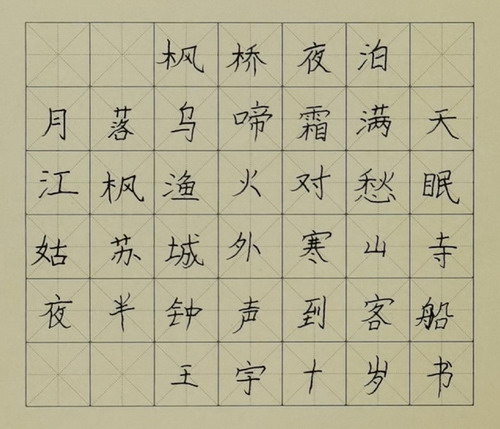 枫桥夜泊
月落乌啼霜满天
江枫渔火对愁眠
姑苏城外寒山寺
夜半钟声到客船
王宇十岁书